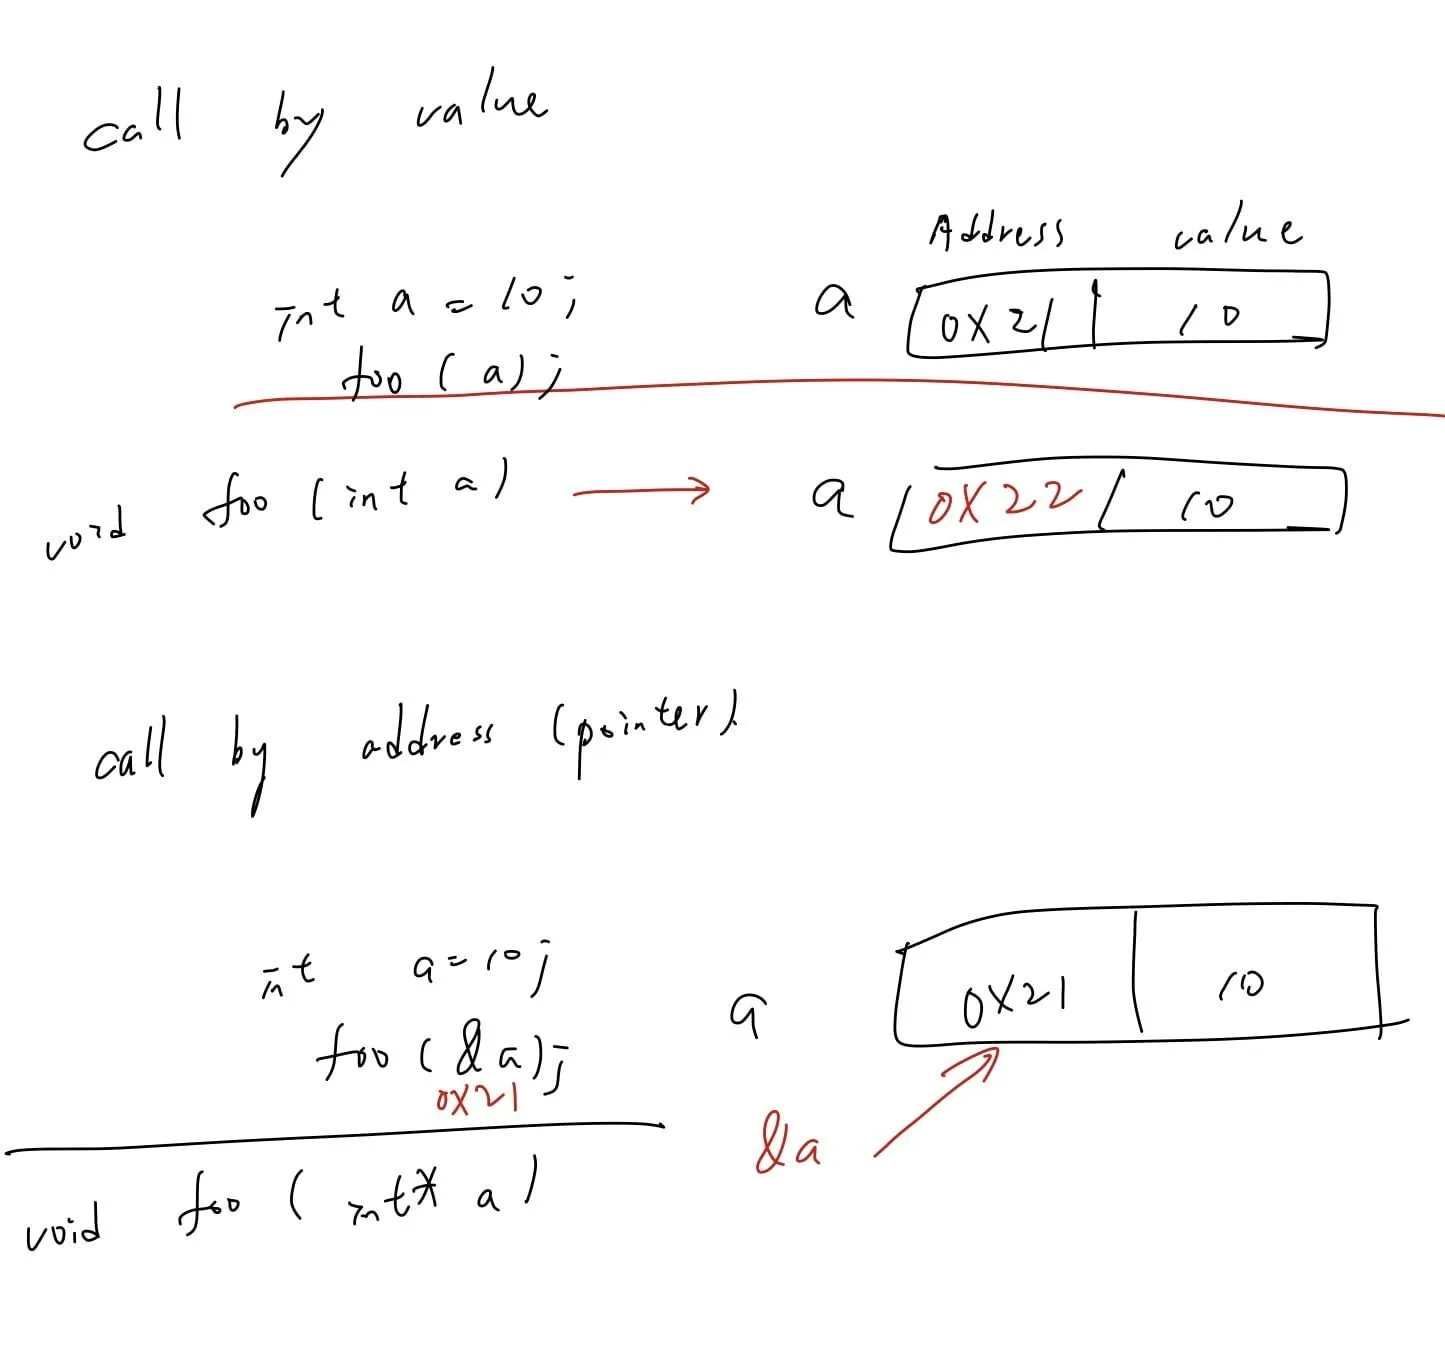 call by value
Address value
int a = 10;
a 0x21 10
foo (a);
void foo (int a) → a 0x22 10
call by address (pointer)
int a = 10;
a 0x21 10
foo (&a);
0x21
&a
void foo (int* a)